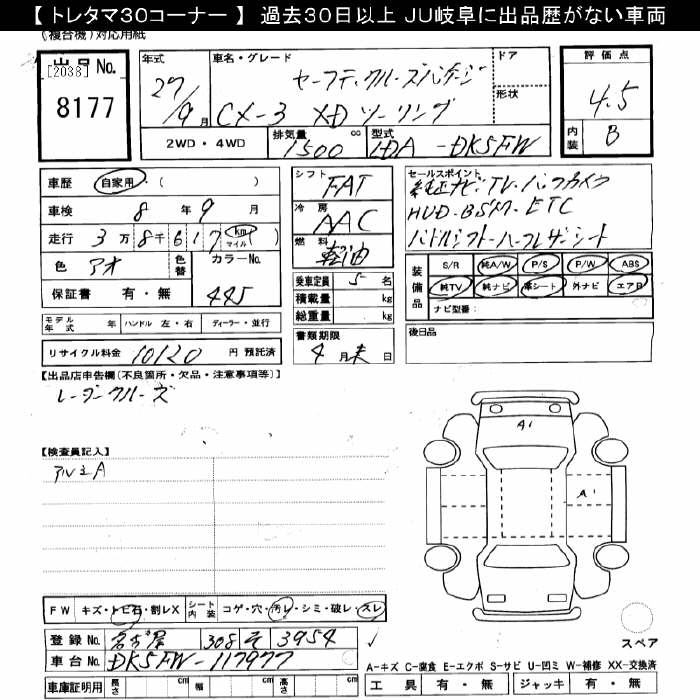 【 トレタマ30コーナー 】 過去30日以上 JU岐阜に出品歴がない車両
(複合機)対応用紙
出品No.
[2038]
8177
年式
27/9月
車名・グレード
セーフティクルーズパッケージ
CX-3 XDツーリング
ドア
形状
評価点
4.5
内装 B
2WD・4WD
排気量 1500 cc
型式 LDA-DK5FW
車歴 自家用・( )
車検 8年 9月
走行 3万8千617(km マイル)
色 アオ
色替
カラーNo. 44S
保証書 有・無
シフト FAT
冷房 AAC
燃料 軽油
乗車定員 5名
積載量 kg
総重量 kg
セールスポイント
純正ナビ・TV・バックカメラ
HUD・BSM・ETC
パドルシフト・ハーフレザーシート
装備品
S/R 純A/W P/S P/W ABS
純TV 純ナビ 革シート 外ナビ エアB
ナビ型番:
モデル年式 年 ハンドル 左・右 ディーラー・並行
リサイクル料金 10120 円 預託済
書類期限
4月末日
後日品
【出品店申告欄(不良箇所・欠品・注意事項等)】
レーダークルーズ
【検査員記入】
アルミA
A1
A1
FW キズ・トビ石・割レX シート内装 コゲ・穴・汚レ・シミ・破レ・スレ
登録No. 名古屋 308 そ 3954
車台No. DK5FW-117977
車庫証明用 長さ cm 幅 cm 高さ cm
スペア
A-キズ C-腐食 E-エクボ S-サビ U-凹ミ W-補修 XX-交換済
工具 有・無 ジャッキ 有・無